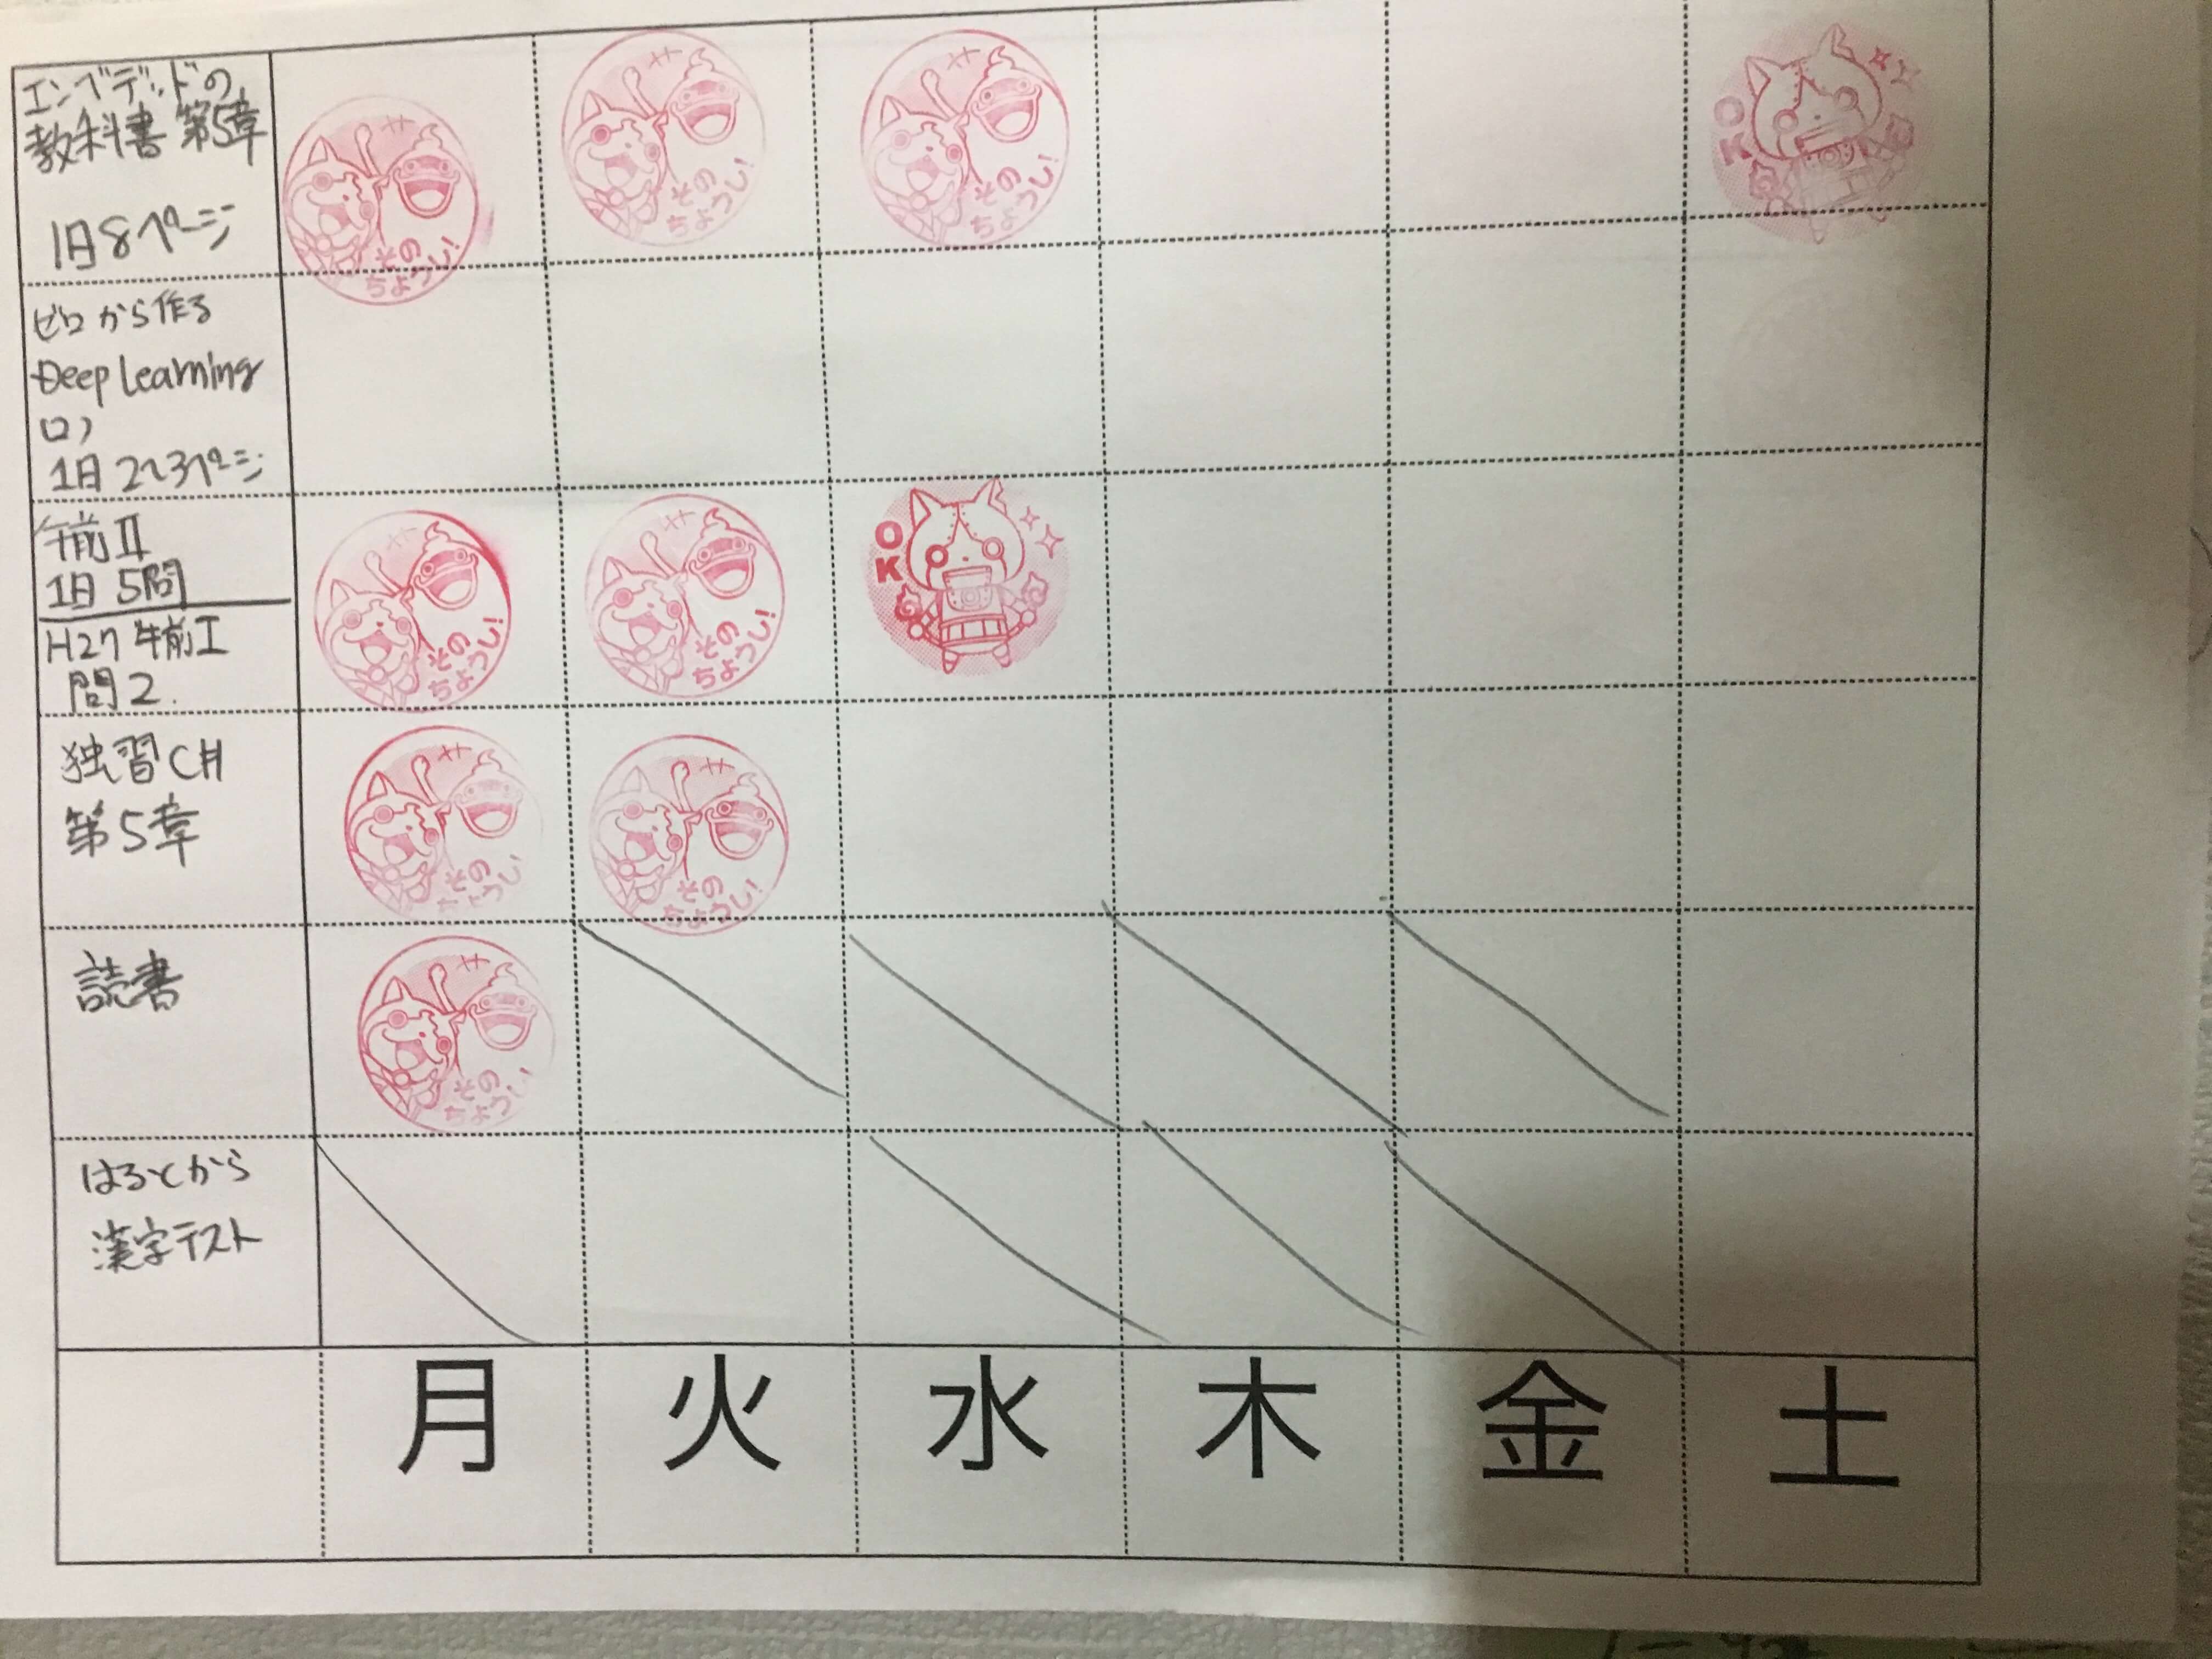 エンベデッドの
教科書 第5章
1日8ページ
その
ちょうし!
その
ちょうし!
その
ちょうし!
OK
ゼロから作る
Deep Learning
1日2~3ページ
午前II
1日 5問
H27 午前I
問2.
その
ちょうし!
その
ちょうし!
OK
独習C#
第5章
その
ちょうし!
その
ちょうし!
読書
その
ちょうし!
はるとから
漢字テスト
月 火 水 木 金 土